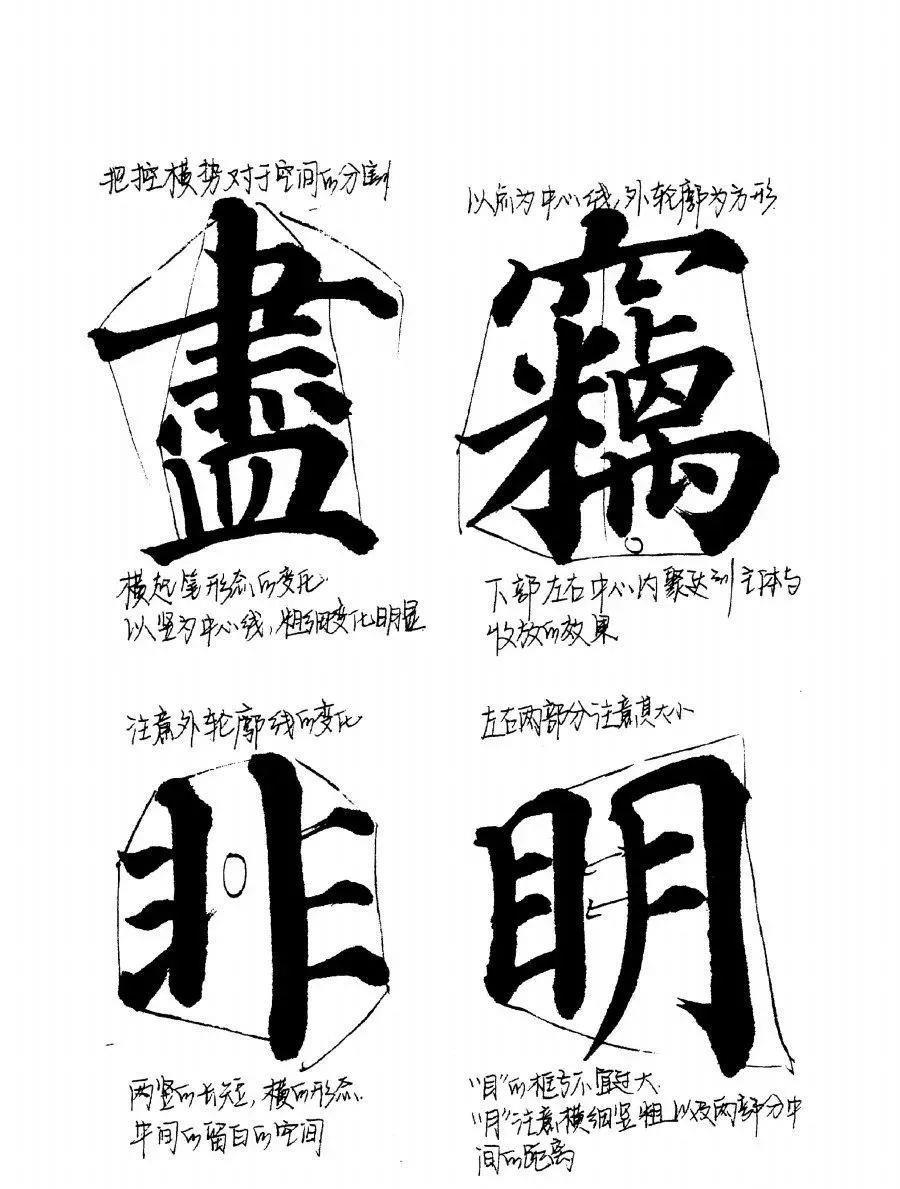 把控横势对于空间的分割
盡
横起笔形态的变化
以竖为中心线,粗细变化明显
以点为中心线,外轮廓为方形
竊
下部左右中心内聚达到主体与
收放的效果
注意外轮廓线的变化
非
两竖的长短,横的形态.
中间的留白的空间
左右两部分注意其大小
眀
“目”的框不宜过大.
“月”注意横细竖粗以及两部分中
间的距离